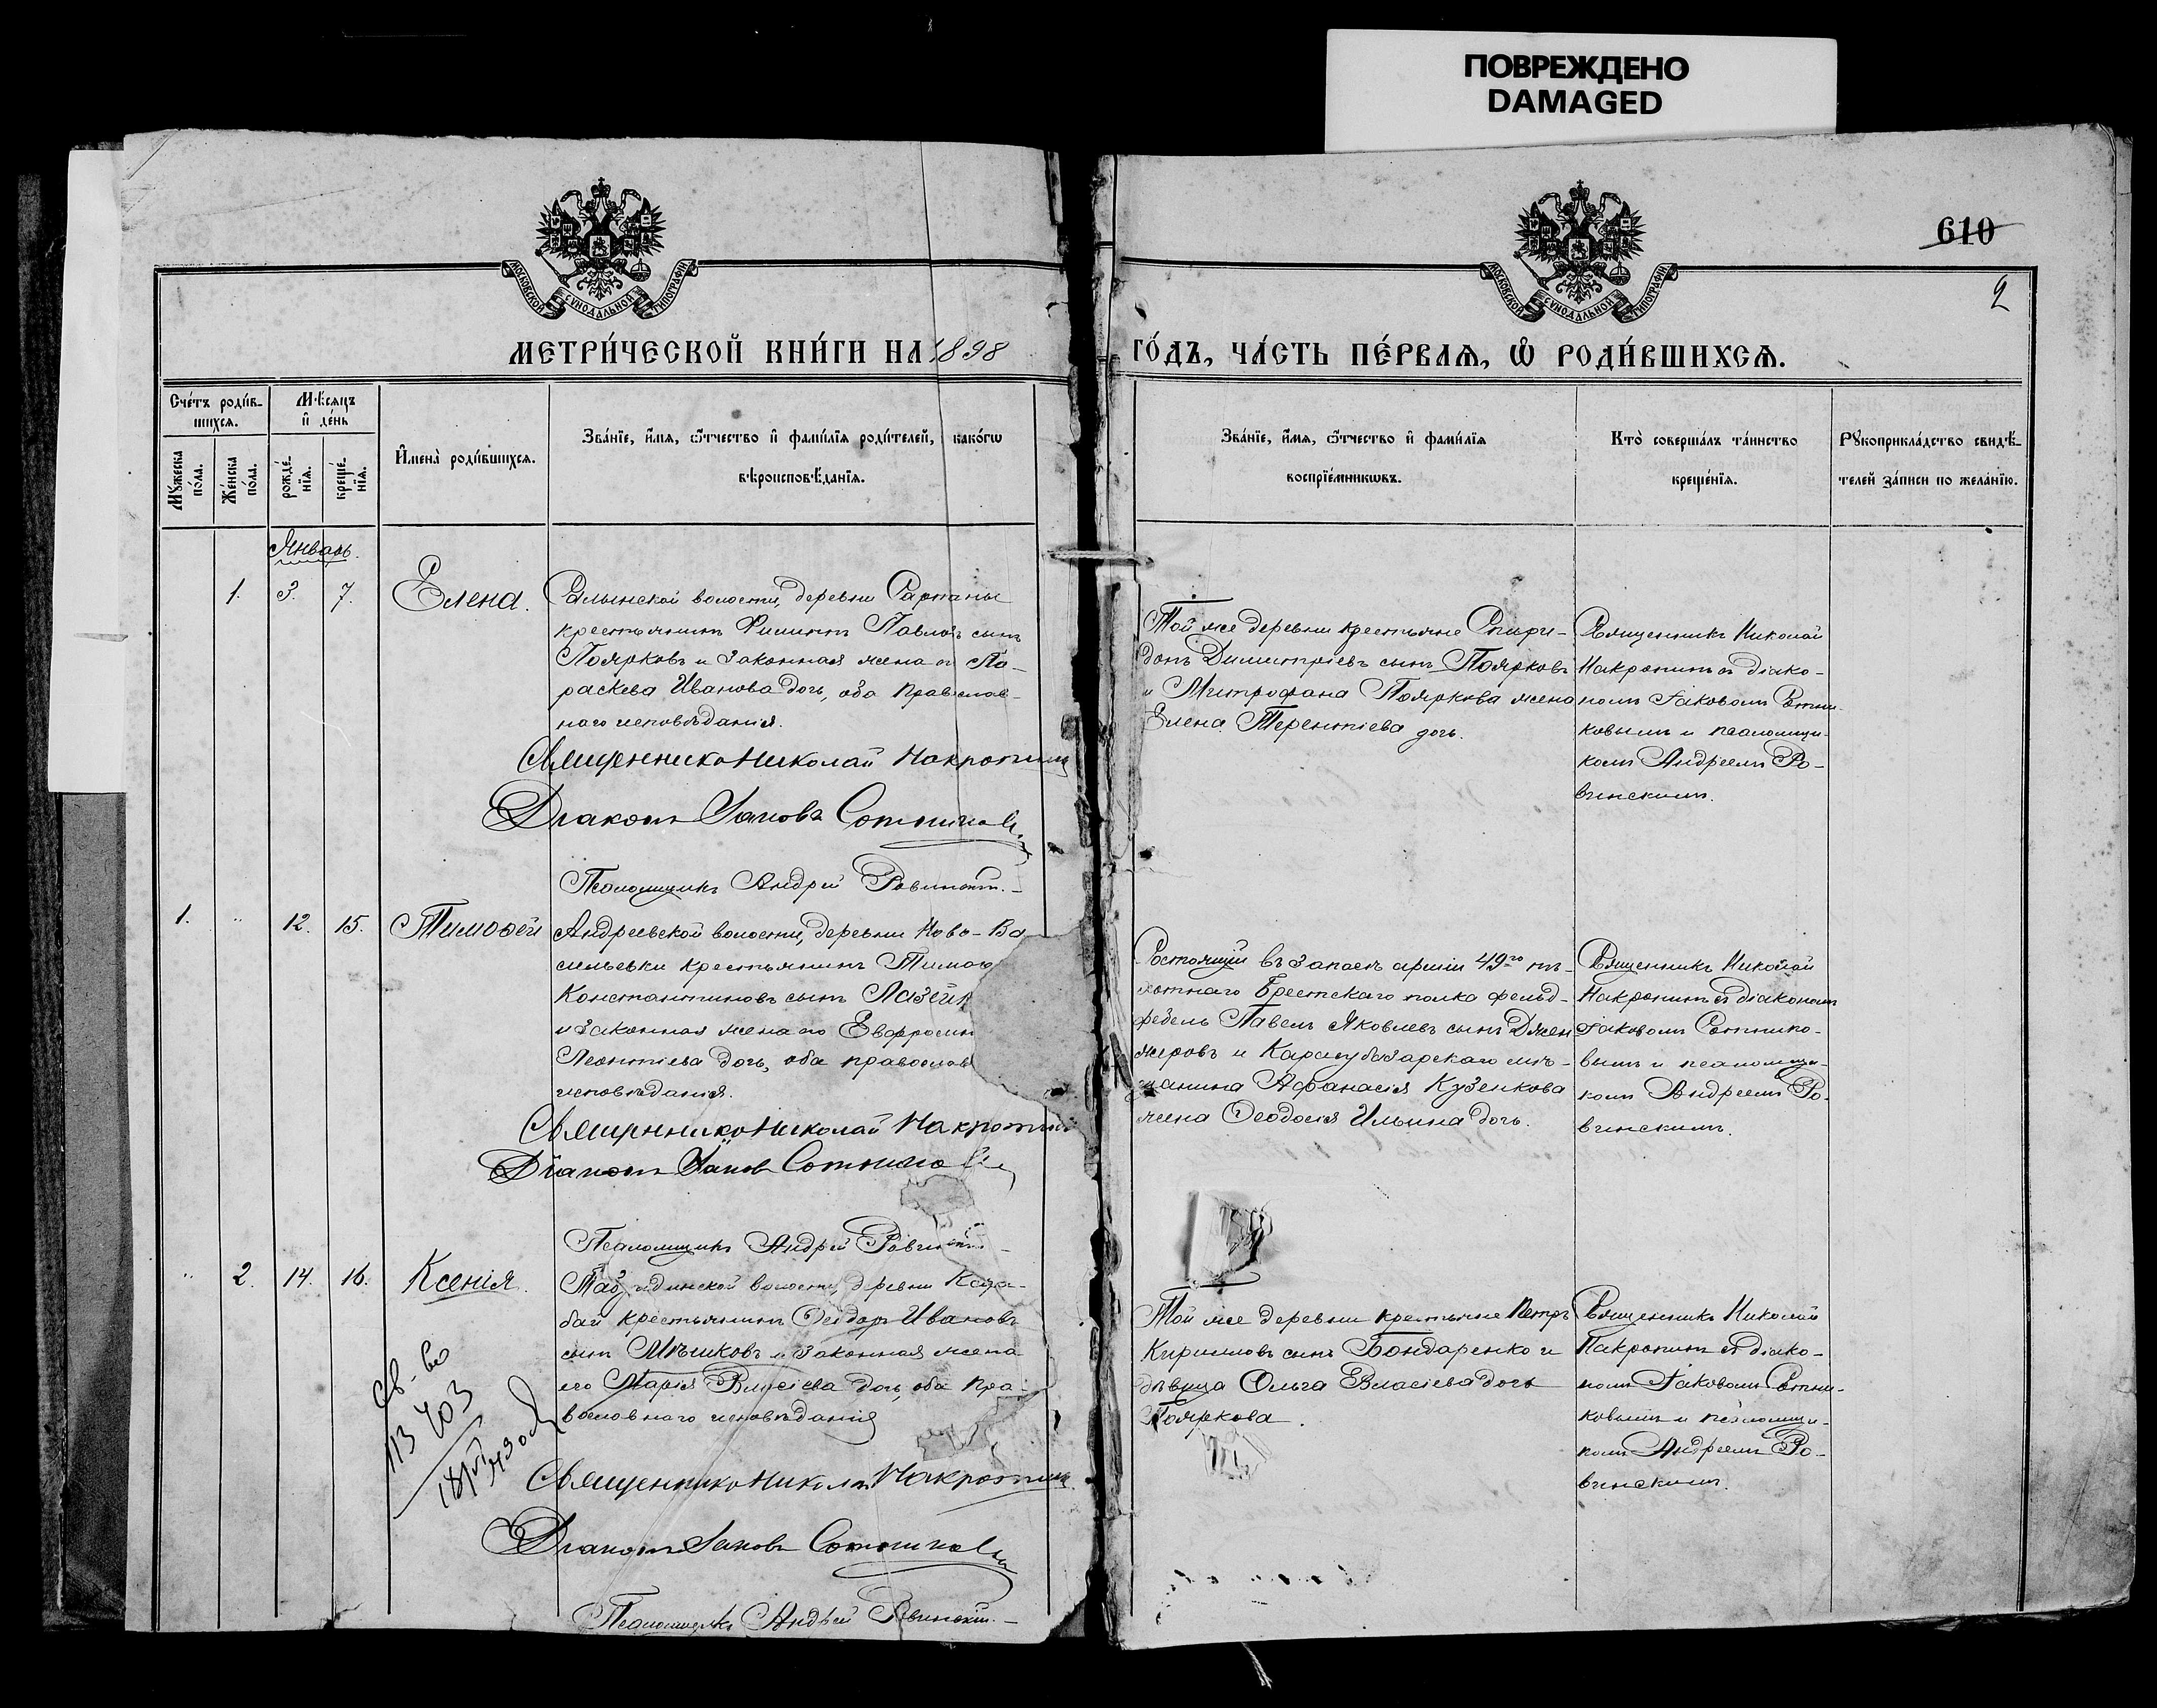 ПОВРЕЖДЕНО
DAMAGED
610
2
МОСКОВСКОЙ СѴНОДАЛЬНОЙ ТИПОГРАФІИ
МОСКОВСКОЙ СѴНОДАЛЬНОЙ ТИПОГРАФІИ
МЕТРИ́ЧЕСКОЙ КНИ́ГИ НА 1898
ГО́ДЪ, ЧА́СТЬ ПЕ́РВАѦ, Ѡ҆ РОДИ́ВШИХСѦ.
Сче́тъ роди́в-
шихсѧ.
Мѣ́сѧцъ
и҆ де́нь
Мꙋ́жеска
по́ла.
Же́нска
по́ла.
рожде́-
нїѧ.
креще́-
нїѧ.
И҆мена̀ роди́вшихсѧ.
Зва́нїе, и҆́мѧ, ѻ҆́тчество и҆ фами́лїѧ роди́телей, како́гѡ
вѣроисповѣ́данїѧ.
Зва́нїе, и҆́мѧ, ѻ҆́тчество и҆ фами́лїѧ
воспрїе́мникѡвъ.
Кто̀ соверша́лъ та́инство
креще́нїѧ.
Рꙋкоприкла́дство свидѣ́-
телей за́писи по жела́нїю.
Январь.
1. 3. 7. Елена.
волости, деревни
крестьянинъ Филиппъ Павловъ сынъ
Поярковъ и законная жена его Па-
раскева Иванова дочь, оба православ-
наго исповѣданія.
Священникъ Николай Накропинъ
Діаконъ Іаковъ Сотниковъ
Псаломщикъ Андрей Ровинскій.
Той же деревни крестьяне Спири-
донъ Димитріевъ сынъ Поярковъ
и Митрофана Пояркова жена
Елена Терентіева дочь.
Священникъ Николай
Накропинъ съ діако-
номъ Іаковомъ Сотни-
ковымъ и псаломщи-
комъ Андреемъ Ро-
винскимъ.
1. " 12. 15. Тимоѳей
Андреевской волости, деревни Ново-Ва
сильевки крестьянинъ Тимоѳ
Константиновъ сынъ Лазей
и законная жена его Евфросин
Леонтіева дочь, оба православ
исповѣданія.
Священникъ Николай Накропинъ
Діаконъ Іаковъ Сотниковъ
Псаломщикъ Андрей Ровинскій
Состоящій въ запасѣ арміи 49го пѣ-
хотнаго Брестскаго полка фельд-
фебель Павелъ Яковлевъ сынъ Джен
жеровъ и Карасубазарскаго мѣ-
щанина Афанасія Кузенкова
жена Ѳеодосія Ильина дочь.
Священникъ Николай
Накропинъ съ діакономъ
Іаковомъ Сотнико-
вымъ и псаломщи-
комъ Андреемъ Ро-
винскимъ.
" 2. 14. 16. Ксенія.
волости, деревни
бай крестьянинъ Ѳеодоръ Ивановъ
сынъ Мѣшковъ и законная жена
его Марія Власіева дочь, оба пра-
вославнаго исповѣданія
Священникъ Николай Накропинъ
Діаконъ Іаковъ Сотниковъ
Псаломщикъ Андрей Ровинскій.
Той же деревни крестьяне Петръ
Кирилловъ сынъ Бондаренко и
дѣвица Ольга Власіева дочь
Пояркова.
Священникъ Николай
Накропинъ съ діако-
номъ Іаковомъ Сотни-
ковымъ и псаломщи-
комъ Андреемъ Ро-
винскимъ.
св-во